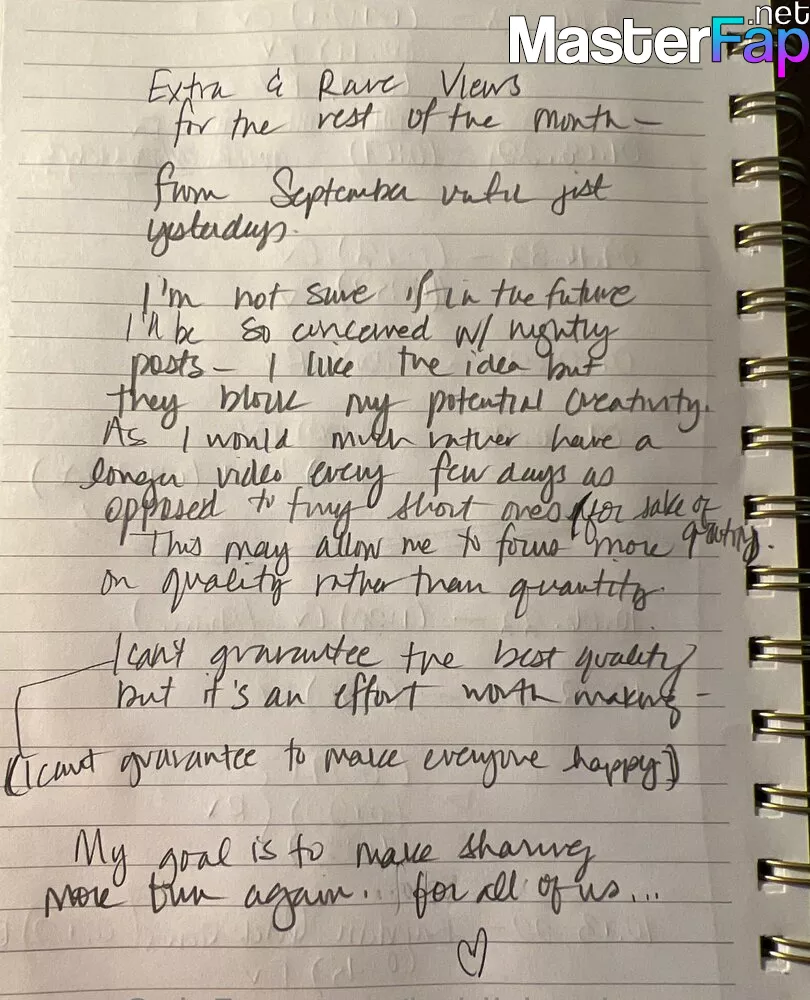 .net
MasterFap
Extra & Rare Views
for the rest of the month -
from September until jist
yesterdays.
I'm not sure if in the future
I'll be so concerned w/ nightly
posts - I like the idea but
they block my potential creativity.
As I would much rather have a
longer video every few days as
opposed to tiny short ones for sake of
quantity.
This may allow me to focus more
on quality rather than quantity.
I can't guarantee the best quality
but it's an effort worth making -
(I cant guarantee to make everyone happy)
My goal is to make sharing
more fun again.. for all of us...